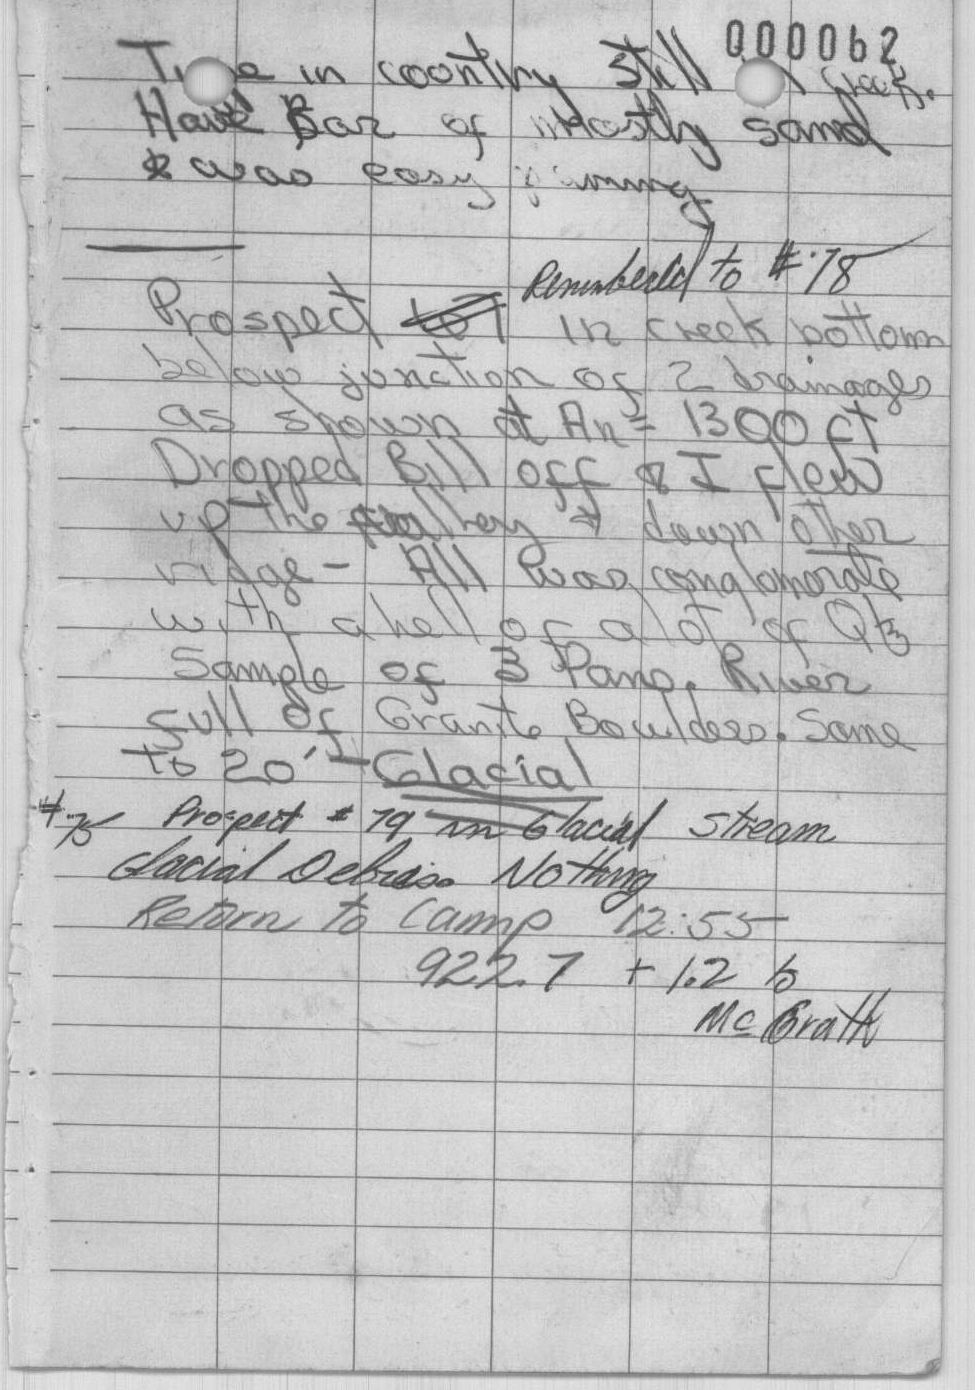 000062
in country Still Creek.
Have Bar of Mostly sand
& was easy
Renumbered to #78
Prospect in creek bottom
below junction of 2 drainages
as shown at An = 1300 ft
Dropped Bill off & I flew
up the valley & down other
ridge - All was conglomorate
with a hell of a lot of Qtz
Sample of 3 Pans. River
full of Granite Boulders. Some
to 20' - Glacial
#75 Prospect # 79 in Glacial stream
Glacial Debris. Nothing
Return to Camp 12:55
922.7 + 1.2 to
McGrath